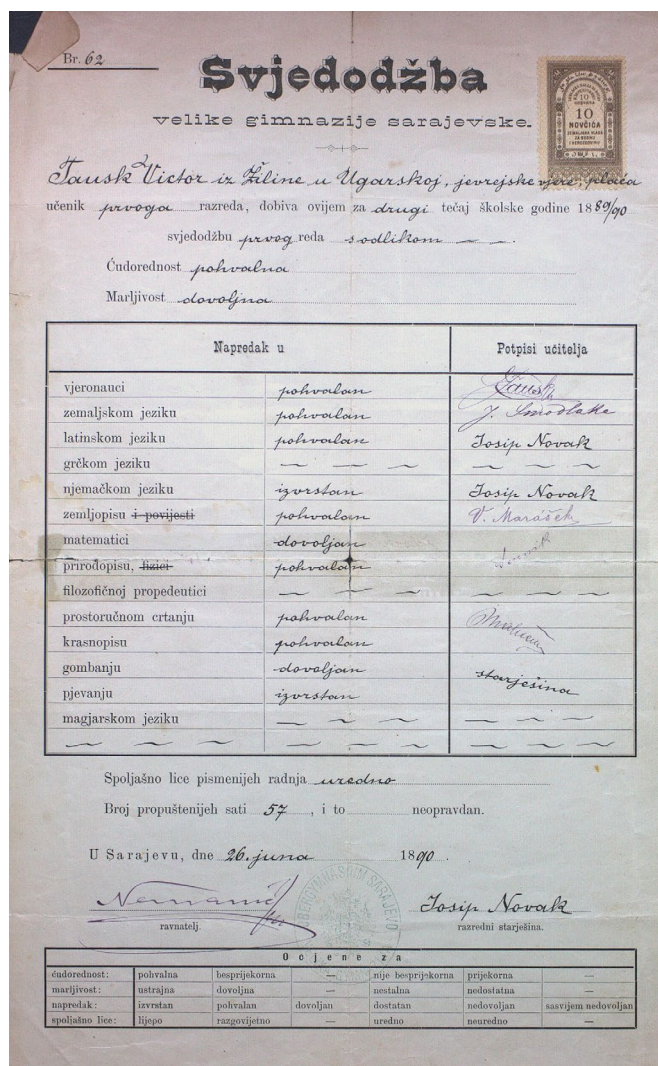 Br. 62
Svjedodžba
velike gimnazije sarajevske.
10
NOVČIĆA
ZEMALJSKA VLADA
ZA BOSNU
I HERCEGOVINU
Tausk Victor iz Žiline u Ugarskoj, jevrejske vjere, plaća
učenik prvoga razreda, dobiva ovijem za drugi tečaj školske godine 1889/90
svjedodžbu prvog reda s odlikom — —.
Ćudorednost pohvalna
Marljivost dovoljna
Napredak u Potpisi učitelja
vjeronauci pohvalan Tausk
zemaljskom jeziku pohvalan J. Smodlaka
latinskom jeziku pohvalan Josip Novak
grčkom jeziku — — — — — —
njemačkom jeziku izvrstan Josip Novak
zemljopisu i povijesti pohvalan V. Maráček
matematici dovoljan
prirodopisu, fizici pohvalan
filozofičnoj propedeutici — — — — — —
prostoručnom crtanju pohvalan
krasnopisu pohvalan
gombanju dovoljan
starješina
pjevanju izvrstan
magjarskom jeziku — — — — — —
— — — — — — — — —
Spoljašno lice pismenijeh radnja uredno
Broj propuštenijeh sati 57, i to neopravdan.
U Sarajevu, dne 26. juna 1890.
OBERGYMNASIUM SARAJEVO
Josip Novak
ravnatelj. razredni starješina.
Ocjene za
ćudorednost: pohvalna besprijekorna — nije besprijekorna prijekorna —
marljivost: ustrajna dovoljna — nestalna nedostatna —
napredak: izvrstan pohvalan dovoljan dostatan nedovoljan sasvijem nedovoljan
spoljašno lice: lijepo razgovijetno — uredno neuredno —